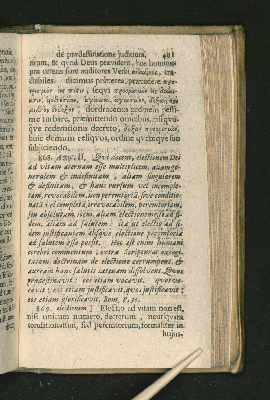 de prædestinatione judicium. 491
rum, & quod Deus præviderit, hos homines
præ cæteris fore auditores Verbi
stabiles. dicimus præterea, præcedere
sequi
perturbare ordinem
sime turbare, præmittendo omnibus, reliquis-
que redemtionis decreto,
hunc demum reliquos, ordine quemque suo
subjiciendo.
868. Antith. II. Qui docent, electionem Dei
ad vitam æternam esse multiplicem, aliam ge-
neralem & indefinitam; aliam singularem
& definitam, & hanc rursum vel incomple-
tam, revocabilem, non peremtoriam, sive conditio-
natam; vel completam, irrevocabilem, peremtoriam,
seu absolutam. item, aliam electionem esse ad fi-
dem, aliam ad salutem: ita ut electio ad fi-
dem justificantem absque electione peremtoria
ad salutem esse possit. Hoc est enim humani
cerebri commentum extra scripturas excogi-
tatum, doctrinam de electione corrumpens, &
auream hanc salutis catenam dissolvens. Quos
prædestinavit: eos etiam vocavit. quos vo-
cavit: eos etiam justificavit. quos justificavit:
eos etiam glorificavit. Rom. 8, 30.
869. electionem] Electio ad vitam non est,
nisi unicum numero, decretum, neutiquam
conditionatum, sed peremtorium, formaliter in
hujus-